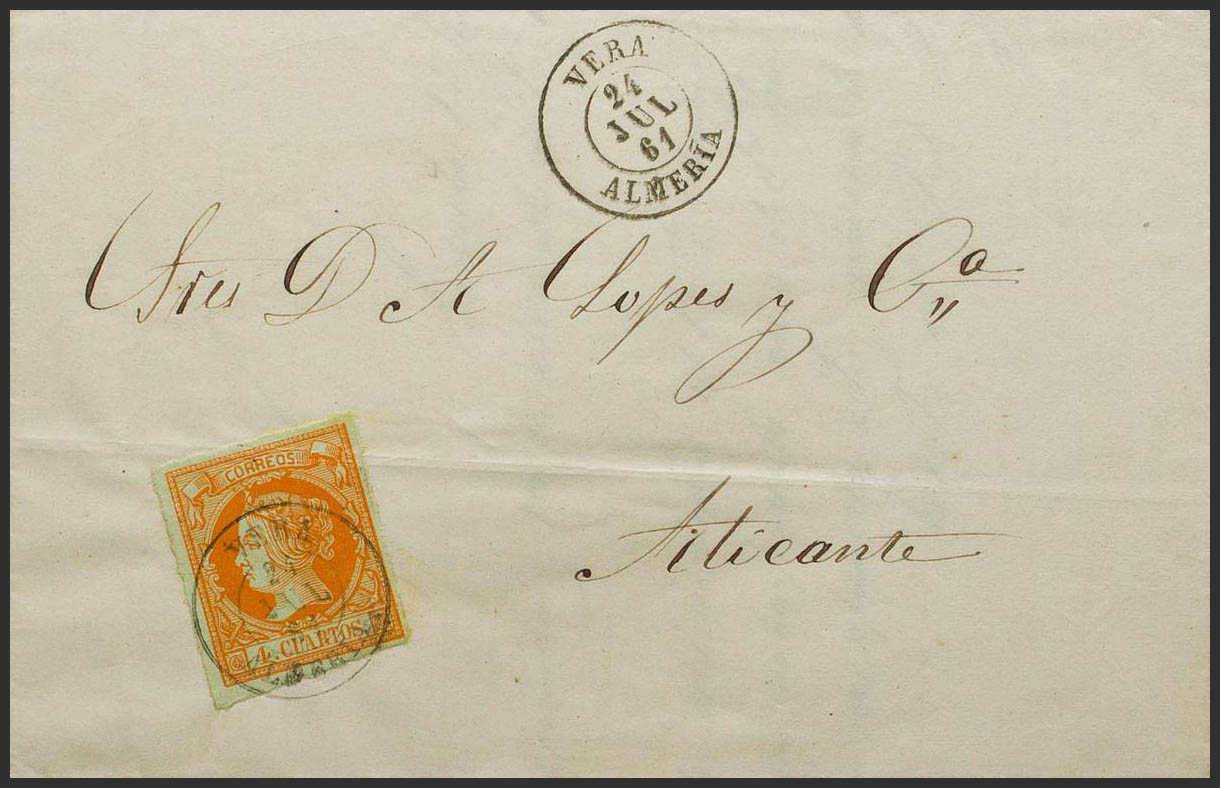 VERA
24
JUL
61
ALMERÍA
Sres D A Lopes y Cª
Alicante
CORREOS
4 CUARTOS
VERA